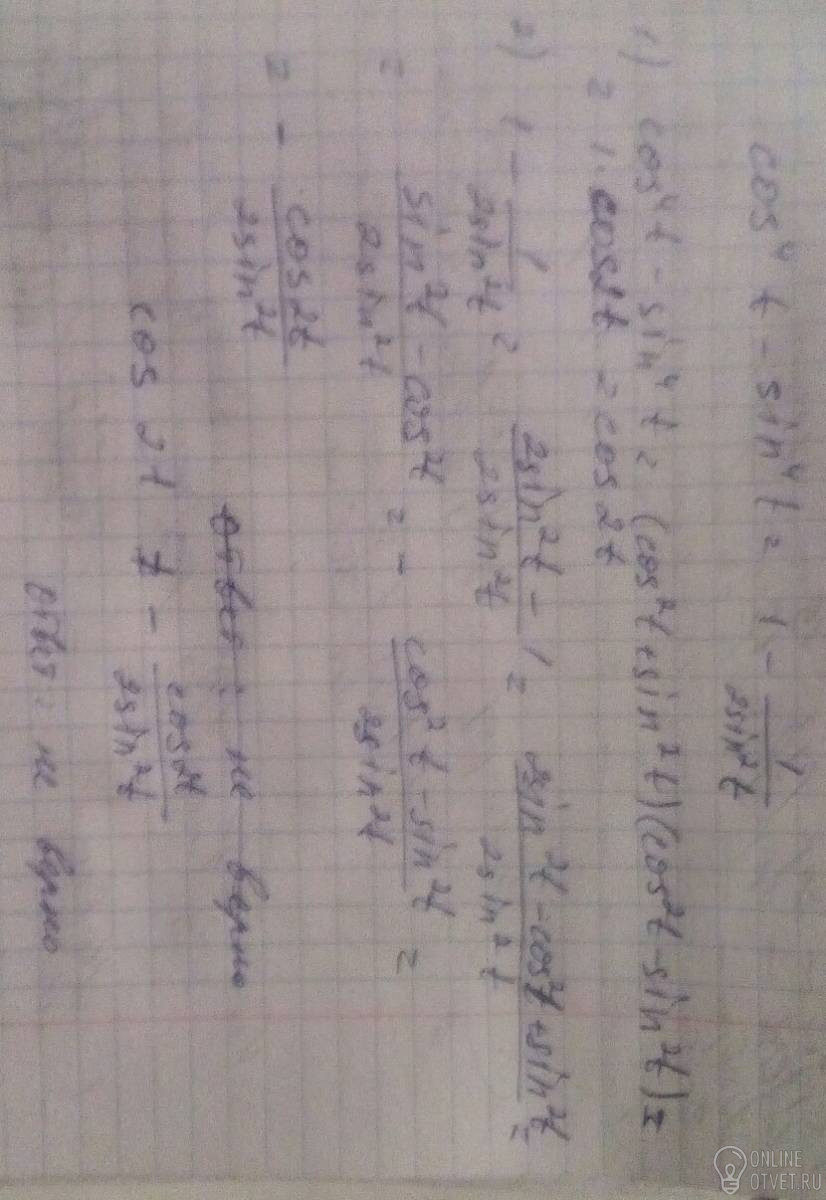 cos⁴t - sin⁴t = 1 - 1/2sin²t
1) cos⁴t - sin⁴t = (cos²t + sin²t)(cos²t - sin²t) =
= 1·cos2t = cos2t
2) 1 - 1/2sin²t = 2sin²t - 1/2sin²t = 2sin²t - cos²t + sin²t/2sin²t =
= sin²t - cos²t/2sin²t = - cos²t - sin²t/2sin²t =
= - cos2t/2sin²t
Ответ: не верно
cos2t ≠ - cos2t/2sin²t
Ответ: не верно
ONLINE
OTVET.RU